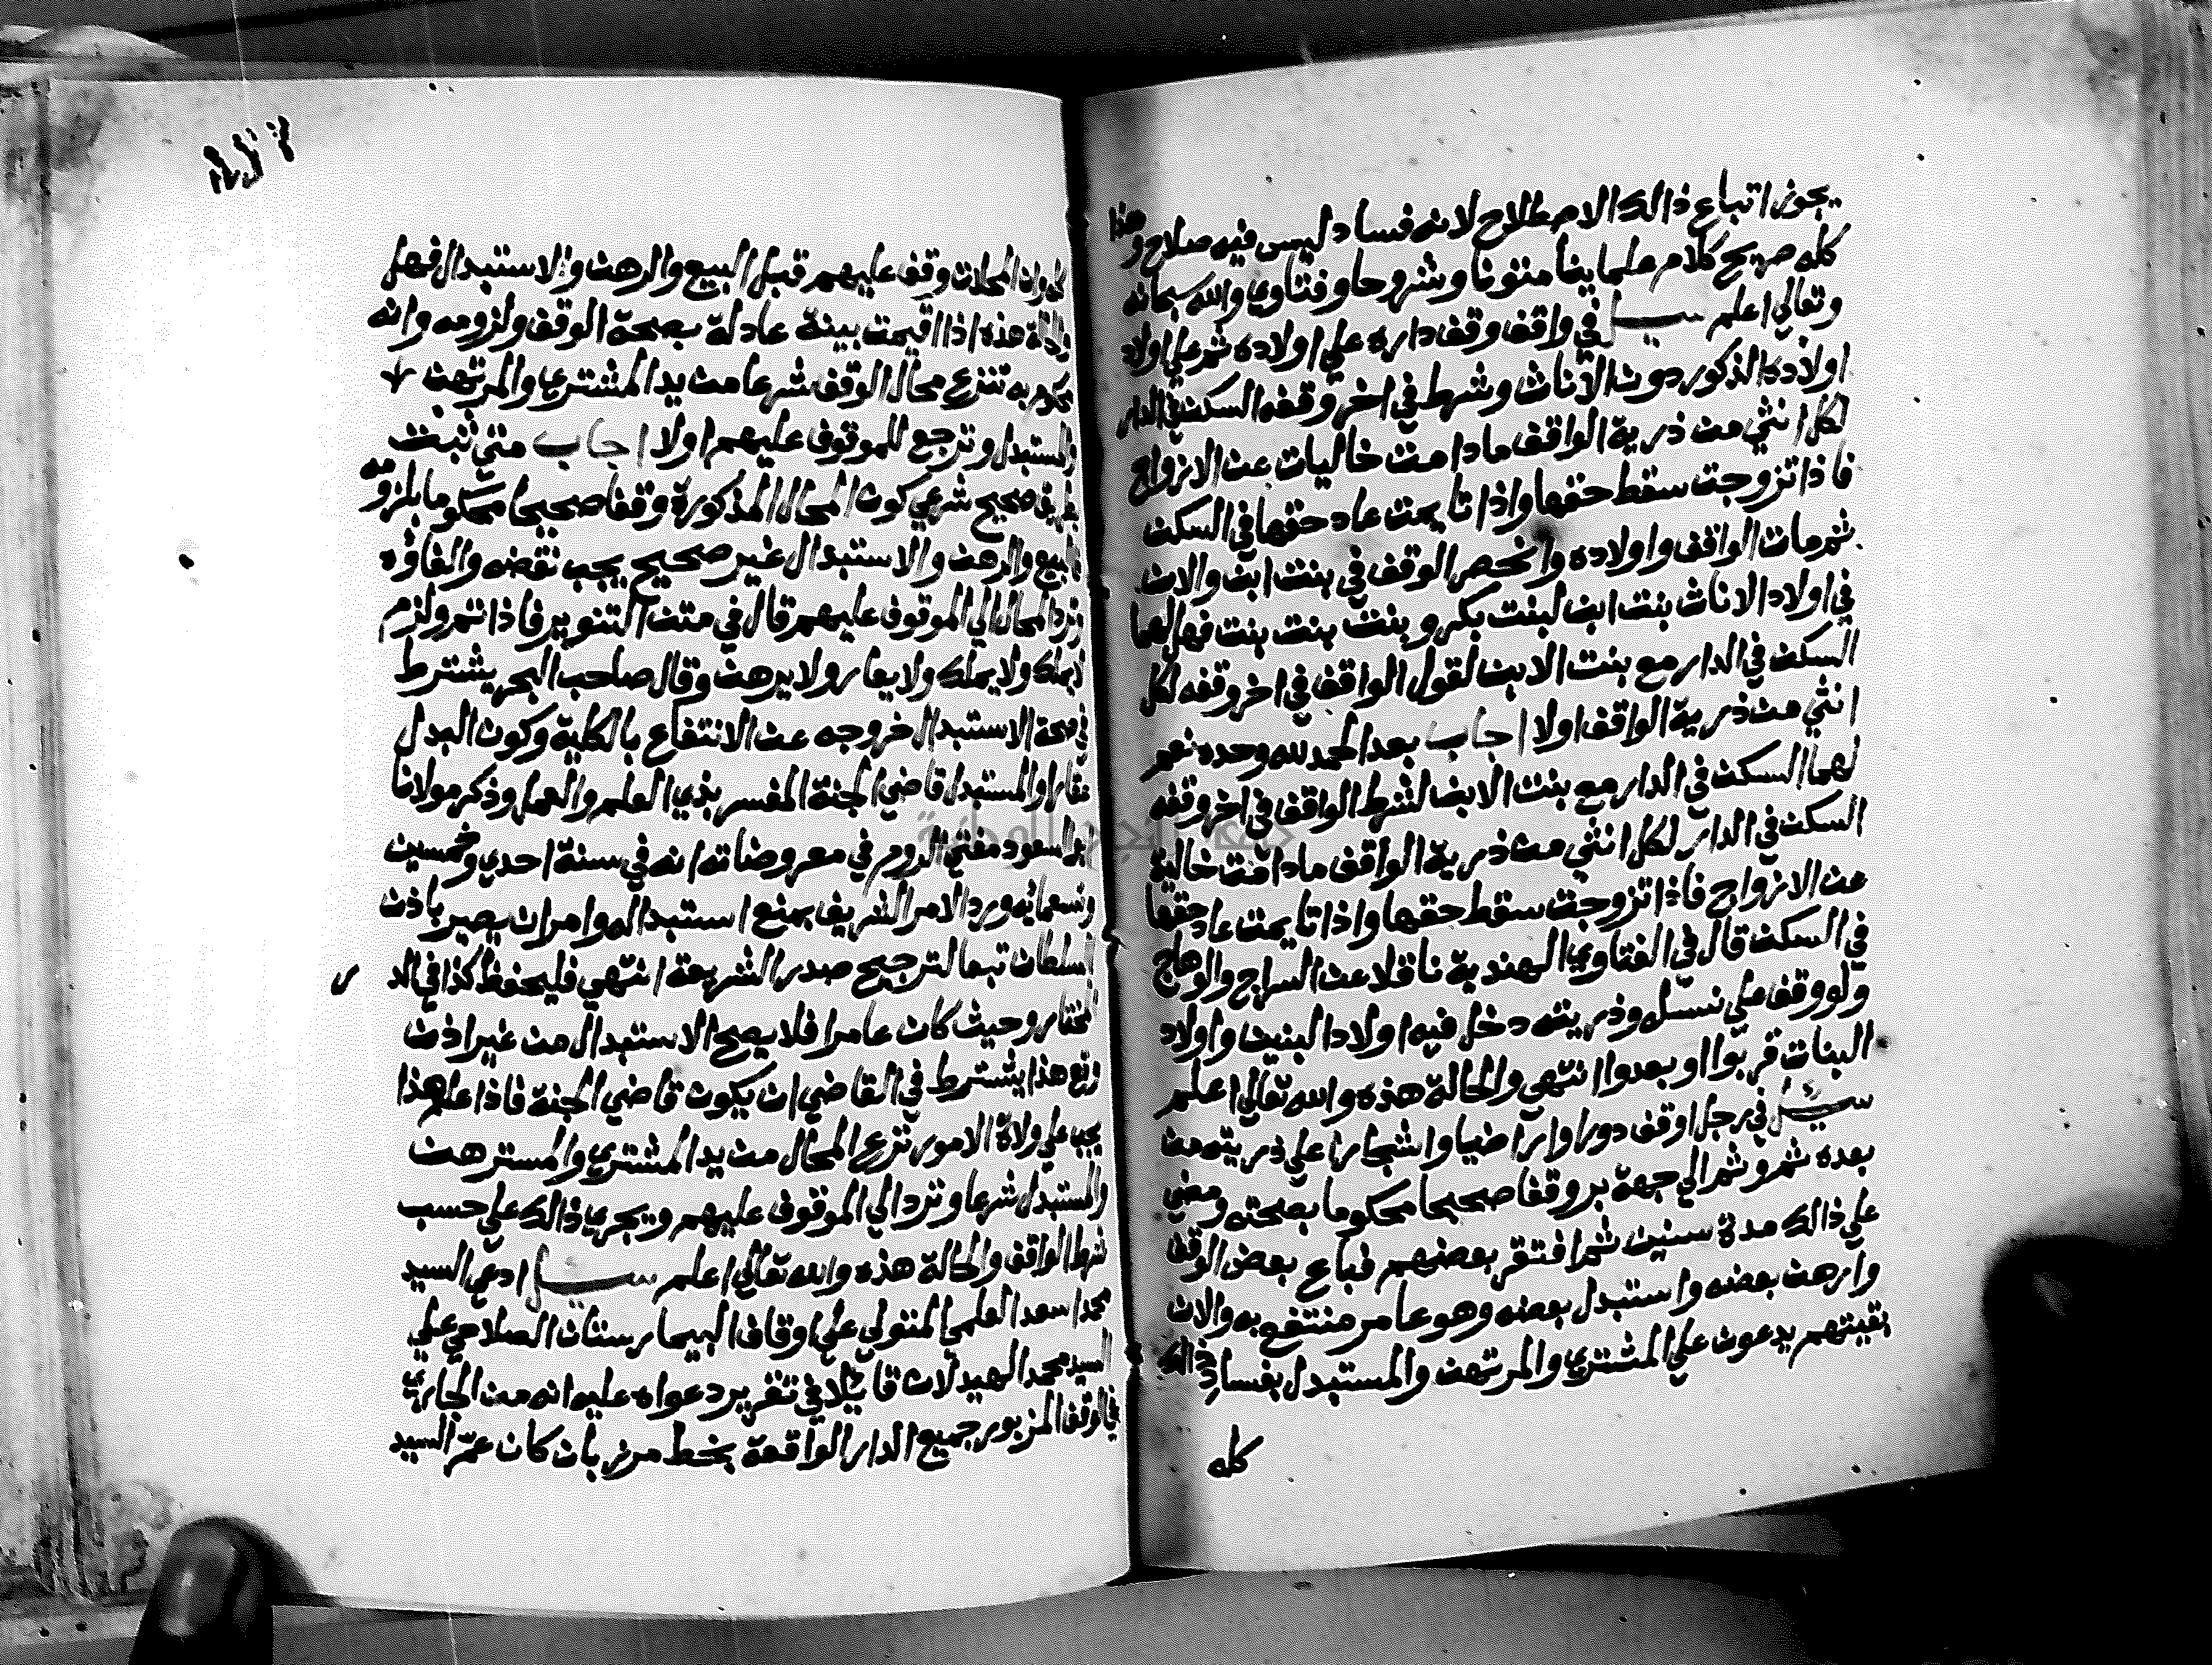 يجوز اتباع ذالك الاصطلاح لانه فساد ليس فيه صلاح وهذا
كله صريح كلام علماينا متونا وشروحا وفتاوي والله سبحانه
وتعالي اعلم سيل في واقف وقف داره علي اولاده ثم علي اولاد
اولاده الذكور دون الاناث وشرط في اخر وقفه السكن في الدار
لكل انثي من ذرية الواقف ما دامت خاليات عن الازواج
فاذا تزوجت سقط حقها واذا تايمت عاد حقها في السكن
ثم مات الواقف واولاده وانحصر الوقف في بنت ابن والان
في اولاد الاناث بنت ابن لبنت بكر وبنت بنت بنت فهل لهما
السكن في الدار مع بنت الابن لقول الواقف في اخر وقفه لكل
انثي من ذرية الواقف اولا اجاب بعد الحمد لله وحده نعم
لهما السكن في الدار مع بنت الابن لشرط الواقف في اخر وقفه
السكن في الدار لكل انثي من ذرية الواقف ما دامت خالية
عن الازواج فاذا تزوجت سقط حقها واذا تايمت عاد حقها
في السكن قال في الفتاوي الهندية ناقلا عن السراج والوهاج
ولو وقف علي نسله وذريته دخل فيه اولاد البنين واولاد
البنات قربوا او بعدوا انتهي والحالة هذه والله تعالي اعلم
سيل في رجل اوقف دورا واراضيا واشجارا علي ذريته من
بعده ثم وثم الي جهة بر وقفا صحيحا محكوما بصحته ومضي
علي ذالك مدة سنين ثم افتقر بعضهم فباع بعض الوقف
وارهن بعضه واستبدل بعضه وهو عامر منتفع به والان
بقيتهم يدعون علي المشتري والمرتهن والمستبدل بفساد ذالك
كله
المحلات وقف عليهم قبل البيع والرهن والاستبدال فهل
والحالة هذه اذا اقيمت بينة عادلة بصحة الوقف ولزومه وانه
محكوم به تنزع محال الوقف شرعا من يد المشتري والمرتهن
والمستبدل وترجع للموقوف عليهم اولا اجاب متي ثبت
بطريق صحيح شرعي كون المحال المذكورة وقفا صحيحا محكوما بلزومه
فالبيع والرهن والاستبدال غير صحيح يجب نقضه والغاؤه
وترد المحال الي الموقوف عليهم قال في متن التنوير فاذا تم ولزم
لا يملك ولا يملك ولا يعار ولا يرهن وقال صاحب البحر يشترط
في صحة الاستبدال خروجه عن الانتفاع بالكلية وكون البدل
عقارا والمستبدل قاضي الجنة المفسر بذي العلم والعمل وذكر مولانا
ابو السعود مفتي الروم في معروضاته انه في سنة احدي وخمسين
وتسعمايه ورد الامر الشريف بمنع استبداله وامر ان يصير باذن
السلطان تبعا لترجيح صدر الشريعة انتهي فليحفظ كذا في الدر
المختار وحيث كان عامرا فلا يصح الاستبدال من غير اذن
ومع هذا يشترط في القاضي ان يكون قاضي الجنة فاذا علم هذا
يجب علي ولاة الامور نزع المحال من يد المشتري والمسترهن
والمستبدل شرعا وترد الي الموقوف عليهم ويجري ذالك علي حسب
شرط الواقف والحالة هذه والله تعالي اعلم سيل ادعي السيد
محمد اسعد العلمي المتولي علي اوقاف البيمارستان الصلاحي علي
السيد محمد الهيدلان قايلا في تقرير دعواه عليه انه من الجاري
في الوقف المزبور جميع الدار الواقعة بخط مرزبان كان عمر السيد